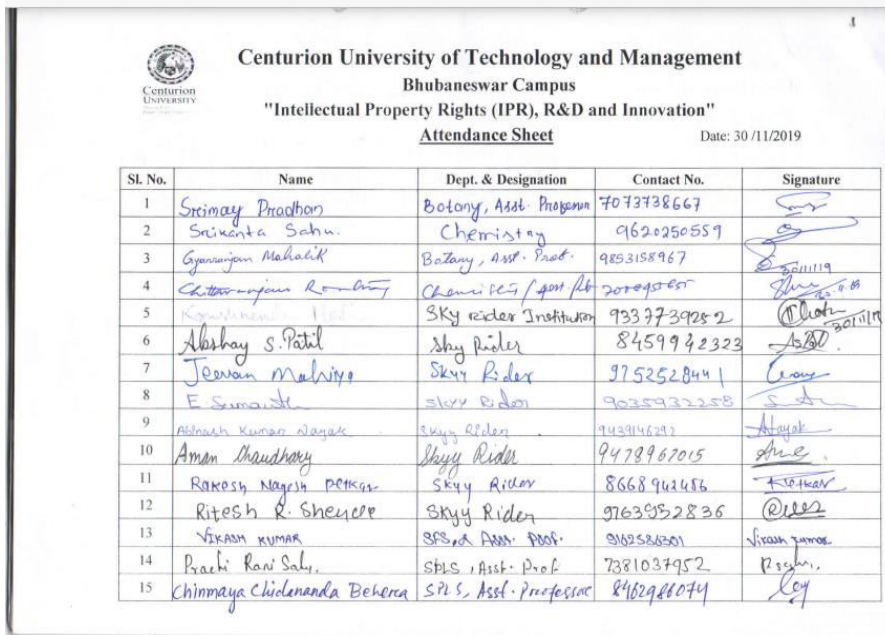 1
Centurion
UNIVERSITY
Centurion University of Technology and Management
Bhubaneswar Campus
"Intellectual Property Rights (IPR), R&D and Innovation"
Attendance Sheet Date: 30 /11/2019
Sl. No. Name Dept. & Designation Contact No. Signature
1 Srimay Pradhan Botany, Asst. Professor 7073738667
2 Srikanta Sahu. Chemistry 9620250559
3 Gyanranjan Mahalik Botany, Asst. Prof. 9853158967 30/11/19
4 Chittaranjan
5 Sky rider Institution 9337739252 30/11/19
6 Akshay S. Patil Sky Rider 8459942323
7 Jeevan Skyy Rider 9752528441
8 E Skyy Rider 9035932258
9 Abinash Kumar Nayak Skyy Rider 9439146292 ANayak
10 Aman Chaudhary Skyy Rider 9478967015
11 Rakesh Nagesh Skyy Rider 8668942486
12 Ritesh R. Shende Skyy Rider 9763952836
13 VIKASH KUMAR Asst. Prof. 9162586301 Vikash Kumar
14 Prachi Rani Sahu. SPLS, Asst. Prof 7381037952
15 Chinmaya Chidananda Behera SPLS, Asst. Professor 8462986074